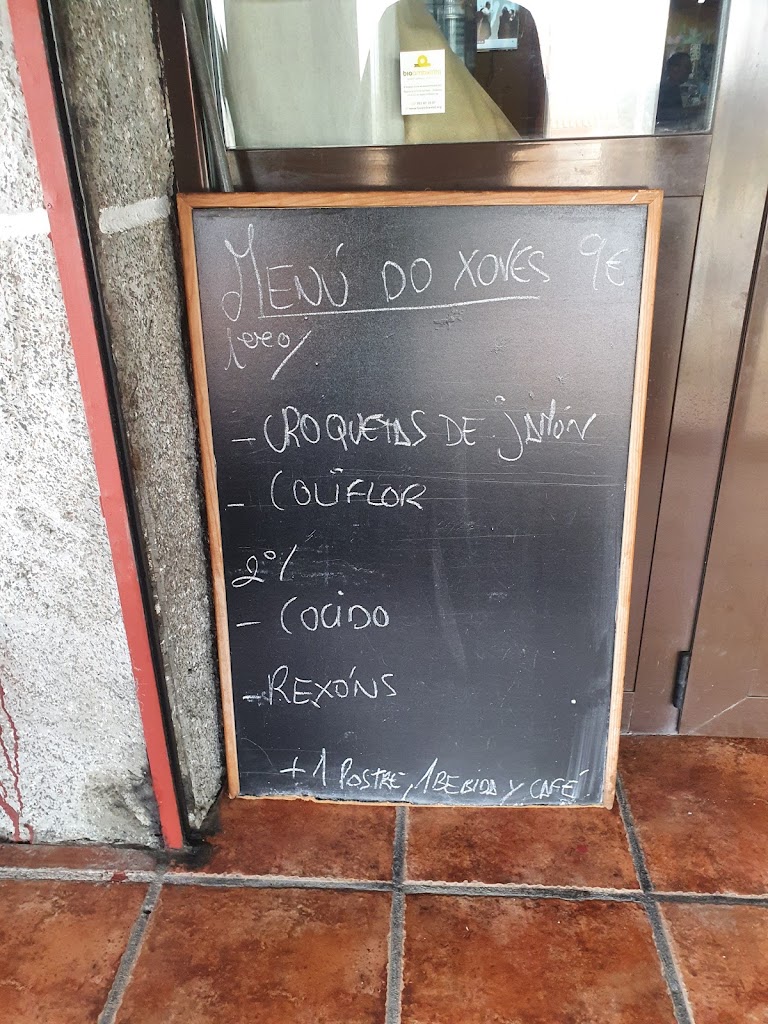 bioambientes
MENÚ DO XOVES 9€
1ero/
- CROQUETAS DE JAMÓN
- COLIFLOR
2º/
- COCIDO
- REXÓNS
+ 1 POSTRE, 1 BEBIDA Y CAFÉ